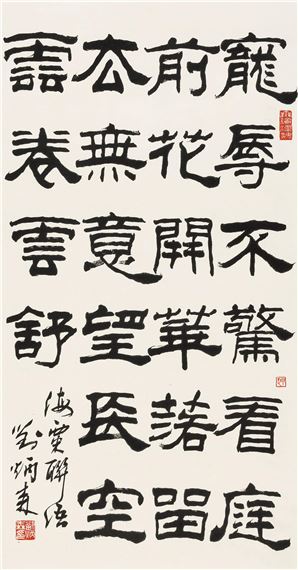 寵辱不驚看庭
前花開華落留
去無意望長空
雲卷雲舒
海粟聯語
劉炳森